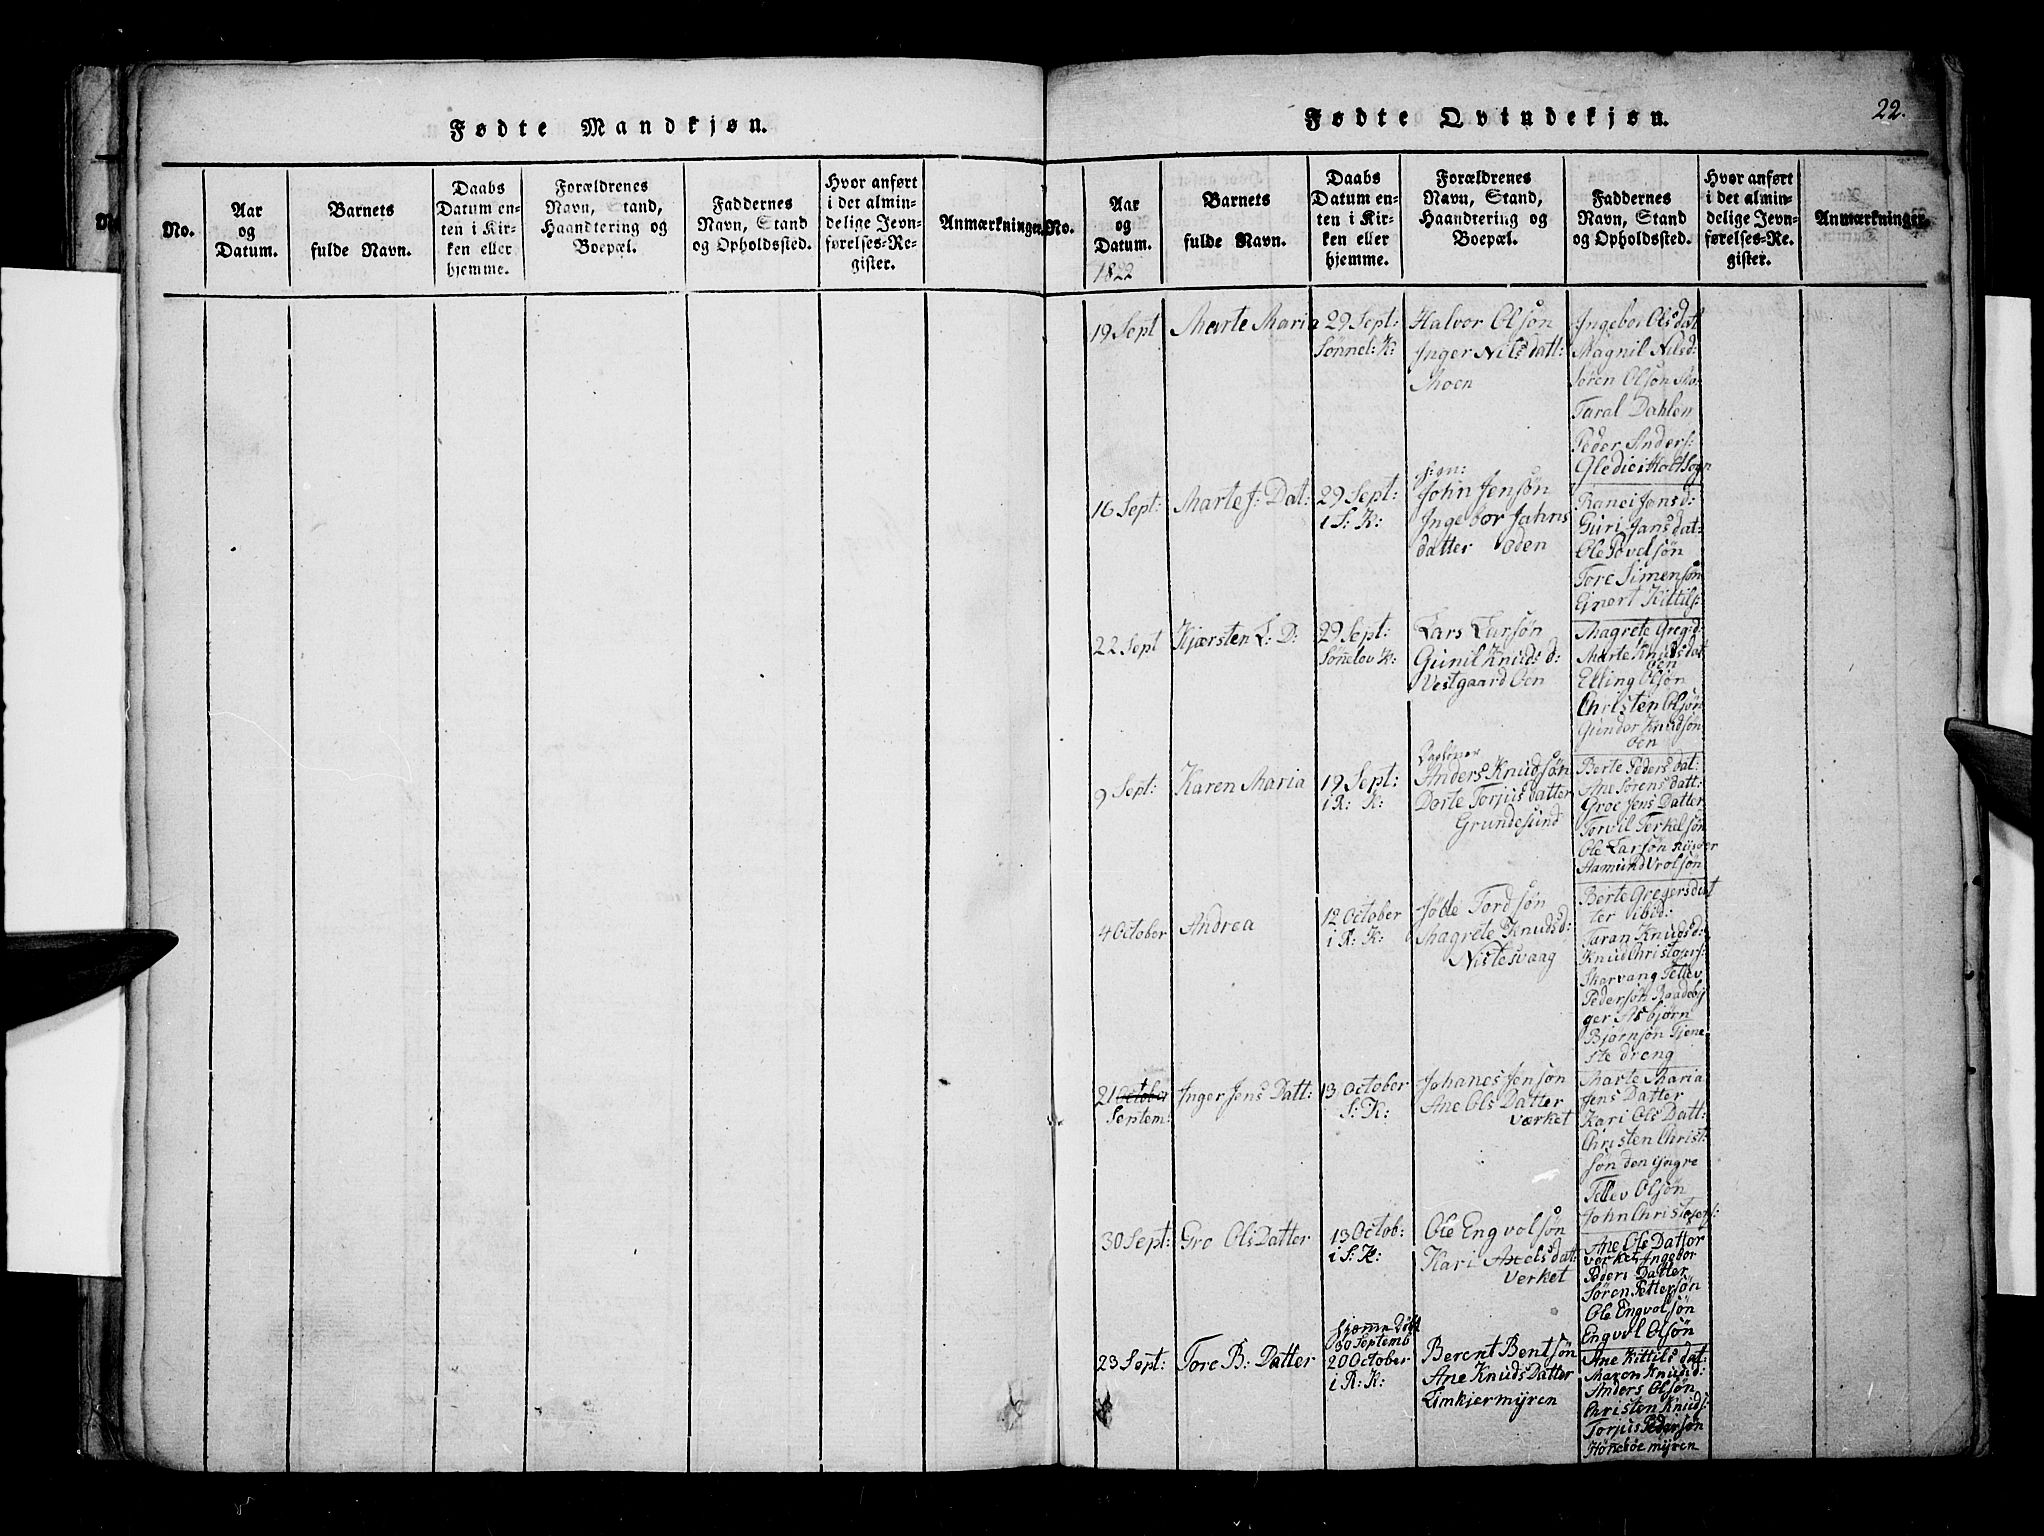 Fødte Mandkjøn.
No.
Aar
og
Datum.
Barnets
fulde Navn.
Daabs
Datum en-
ten i Kir-
ken eller
hjemme.
Forældrenes
Navn, Stand,
Haandtering og
Boepæl.
Faddernes
Navn, Stand
og Opholdssted.
Hvor anført
i det almin-
delige Jevn-
førelses-Re-
gister.
Anmærkninger.
Fødte Qvindekjøn.
22.
No.
Aar
og
Datum.
1822
Barnets
fulde Navn.
Daabs
Datum en-
ten i Kir-
ken eller
hjemme.
Forældrenes
Navn, Stand,
Haandtering og
Boepæl.
Faddernes
Navn, Stand
og Opholdssted.
Hvor anført
i det almin-
delige Jevn-
førelses-Re-
gister.
Anmærkninger.
19 Sept
Marte Maria
29 Sept:
Sønnel: K:
Halvor Olsøn
Inger Nils datt:
Moen
Ingebor Ols dat
Magnil Nilsd:
Søren Olsøn Mo
Taral Dahlen
Peder Anders:
Gledie i Holt Sogn
16 Sept:
Marte J: Dat:
29 Sept:
i S: K:
John Jensøn
Ingebor Jahns
datter Oden
Ranei Jonsd:
Guri Jans dat:
Ole Povelsøn
Tore Simensøn
Einert Kittils:
22 Sept
Kjærsten L: D:
29 Sept:
Sønnelov K:
Lars Lursøn
Gunil Knuds d:
Vestgaard Oen
Magrete Greg:d:
Marte Knuds dat
oen
Elling Olsøn
Christen Olsøn
Gunder Knudsøn
oen
9 Sept:
Karen Maria
19 Sept:
i R: K:
Dagloner
Anders Knudsøn
Dorte Torjus datter
Grundesund
Berte Peders dat:
Ane Sørens datt:
Groe Jens Datter
Torvil Terkelsøn
Ole Larsøn Riisøer
Aamund Vrolsøn
4 October
Andrea
12 October
i R: K:
Jølle Tordsøn
Magrete Knudsd:
Nistesvaag
Berte Gregersdat
ter ibid:
Taran Knudsd:
Knud Christofers:
Skarvang Tellev
Pedersøn Raadebij
ger Asbjørn
Bjørnsøn Tjene
ste dreng
21 October
Septem:
Inger Jens Datt:
13 October
S: K:
Johanes Jensøn
Ane Ols Datter
værket
Marte Maria
Jens Datter
Kari Ols Datt:
Christen Christ:
søn den ijngre
Tellev Olsøn
John Christofers:
30 Sept:
Gro Ols Datter
13 Octob:
i S: K:
Ole Engvolsøn
Kari Axels dat:
Verket
Ane Ols Datfor
værket Ingebor
Peders Datter
Søren Pettersøn
Ole Engvolsøn
Engvol Olsøn
23 Sept:
Tore B: Datter
hjemme Døbt
30 Septemb
20 October
i R: K:
Berent Bentsøn
Ane Knuds Datter
Limkjermijren
Ane Kittils dat:
Maren Knusd:
Anders Olsøn
Christen Knuds:
Torjus Pedersøn
Hønebøe mijren